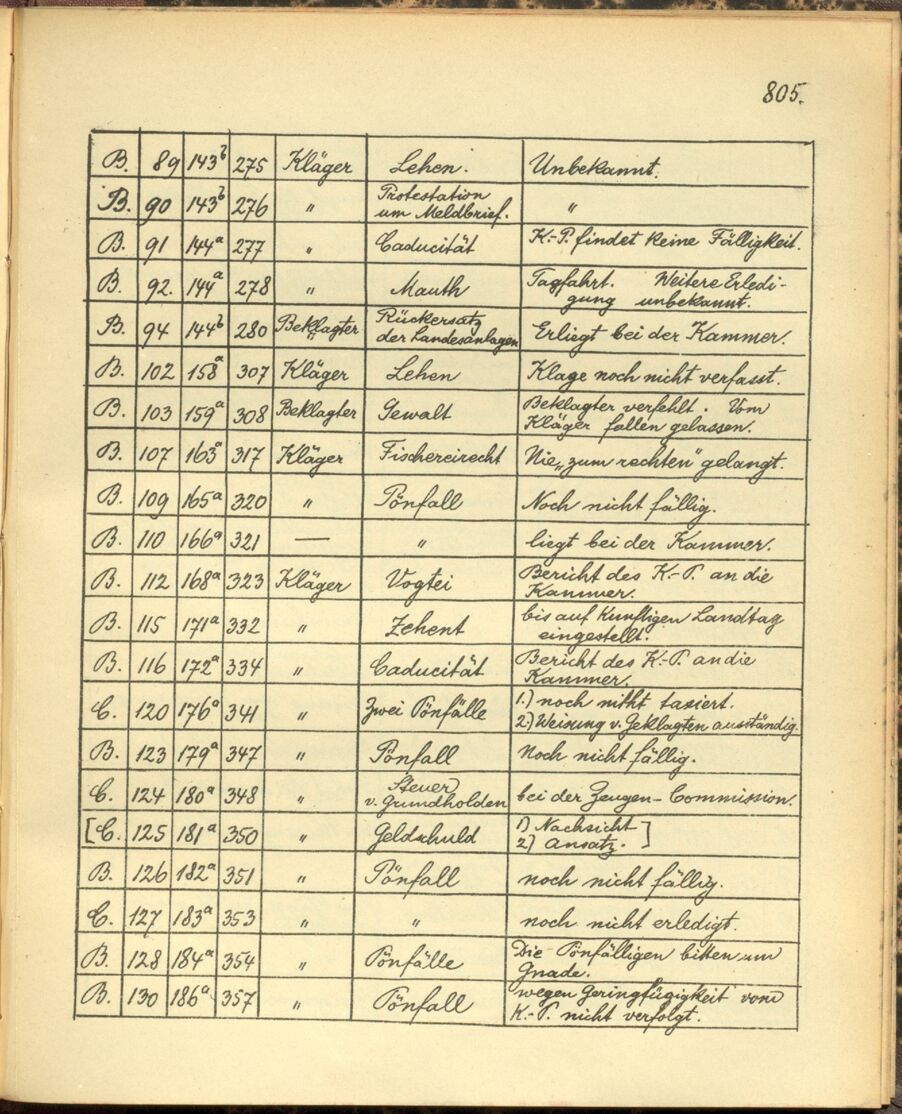 805.
B. 89 143b 275 Kläger Lehen. Unbekannt.
B. 90 143b 276 " Protestation um Meldbrief. "
B. 91 144a 277 " Caducität K.-P. findet keine Fälligkeit.
B. 92. 144a 278 " Mauth Tagfahrt. Weitere Erledi-
gung unbekannt.
B. 94 144b 280 Beklagter Rückersatz der Landesanlagen Erliegt bei der Kammer.
B. 102 158a 307 Kläger Lehen Klage noch nicht verfasst.
B. 103 159a 308 Beklagter Gewalt Beklagter verfehlt. Vom
Kläger fallen gelassen.
B. 107 163a 317 Kläger Fischereirecht Nie „zum rechten" gelangt.
B. 109 165a 320 " Pönfall Noch nicht fällig.
B. 110 166a 321 — " liegt bei der Kammer.
B. 112 168a 323 Kläger Vogtei Bericht des K.-P. an die
Kammer.
B. 115 171a 332 " Zehent bis auf Kunftigen Landtag
eingestellt.
B. 116 172a 334 " Caducität Bericht des K.-P. an die
Kammer.
C. 120 176a 341 " Zwei Pönfälle 1.) noch nicht taxiert.
2.) Weisung v. Geklagten ausständig.
B. 123 179a 347 " Pönfall Noch nicht fällig.
C. 124 180a 348 " Steuer v. Grundholden bei der Zeugen-Commission.
[C. 125 181a 350 " Geldschuld 1) Nachsicht
2) Ansatz. ]
B. 126 182a 351 " Pönfall noch nicht fällig.
C. 127 183a 353 " " noch nicht erledigt.
B. 128 184a 354 " Pönfälle Die Pönfälligen bitten um
Gnade.
B. 130 186a 357 " Pönfall wegen Geringfügigkeit vom
K.-P. nicht verfolgt.